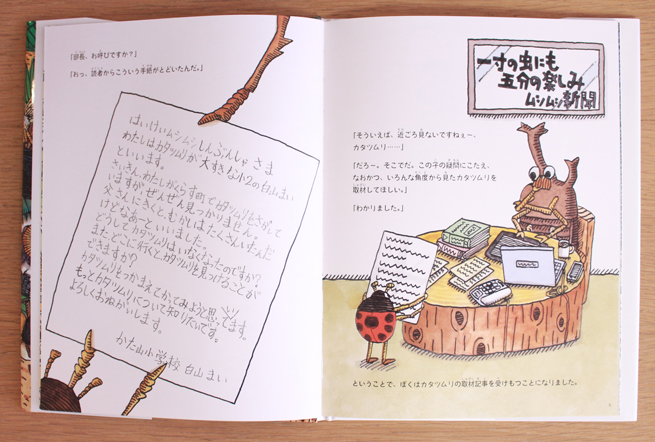 「部長、お呼びですか？」
「おっ、読者からこういう手紙がとどいたんだ。」
はいけいムシムシしんぶんしゃさま
わたしはカタツムリが大すきな小2の白山まい
といいます。
さいきん、わたしがくらす町でカタツムリをさがして
いますが、ぜんぜん見つかりません。
父さんにきくと、むかしはたくさんいたんだ
けどなあーといいました。
どうしてカタツムリはいなくなったのですか？
またどこに行くとカタツムリを見つけることが
できますか？
カタツムリをつかまえてかってみようと思ってます。
もっとカタツムリについて知りたいです。
よろしくおねがいします。
かた山小学校 白山まい
一寸の虫にも
五分の楽しみ
ムシムシ新聞
「そういえば、近ごろ見ないですねぇー、
カタツムリ……」
「だろー。そこでだ。この子の疑問にこたえ、
なおかつ、いろんな角度から見たカタツムリを
取材してほしい。」
「わかりました。」
ということで、ぼくはカタツムリの取材記事を受けもつことになりました。